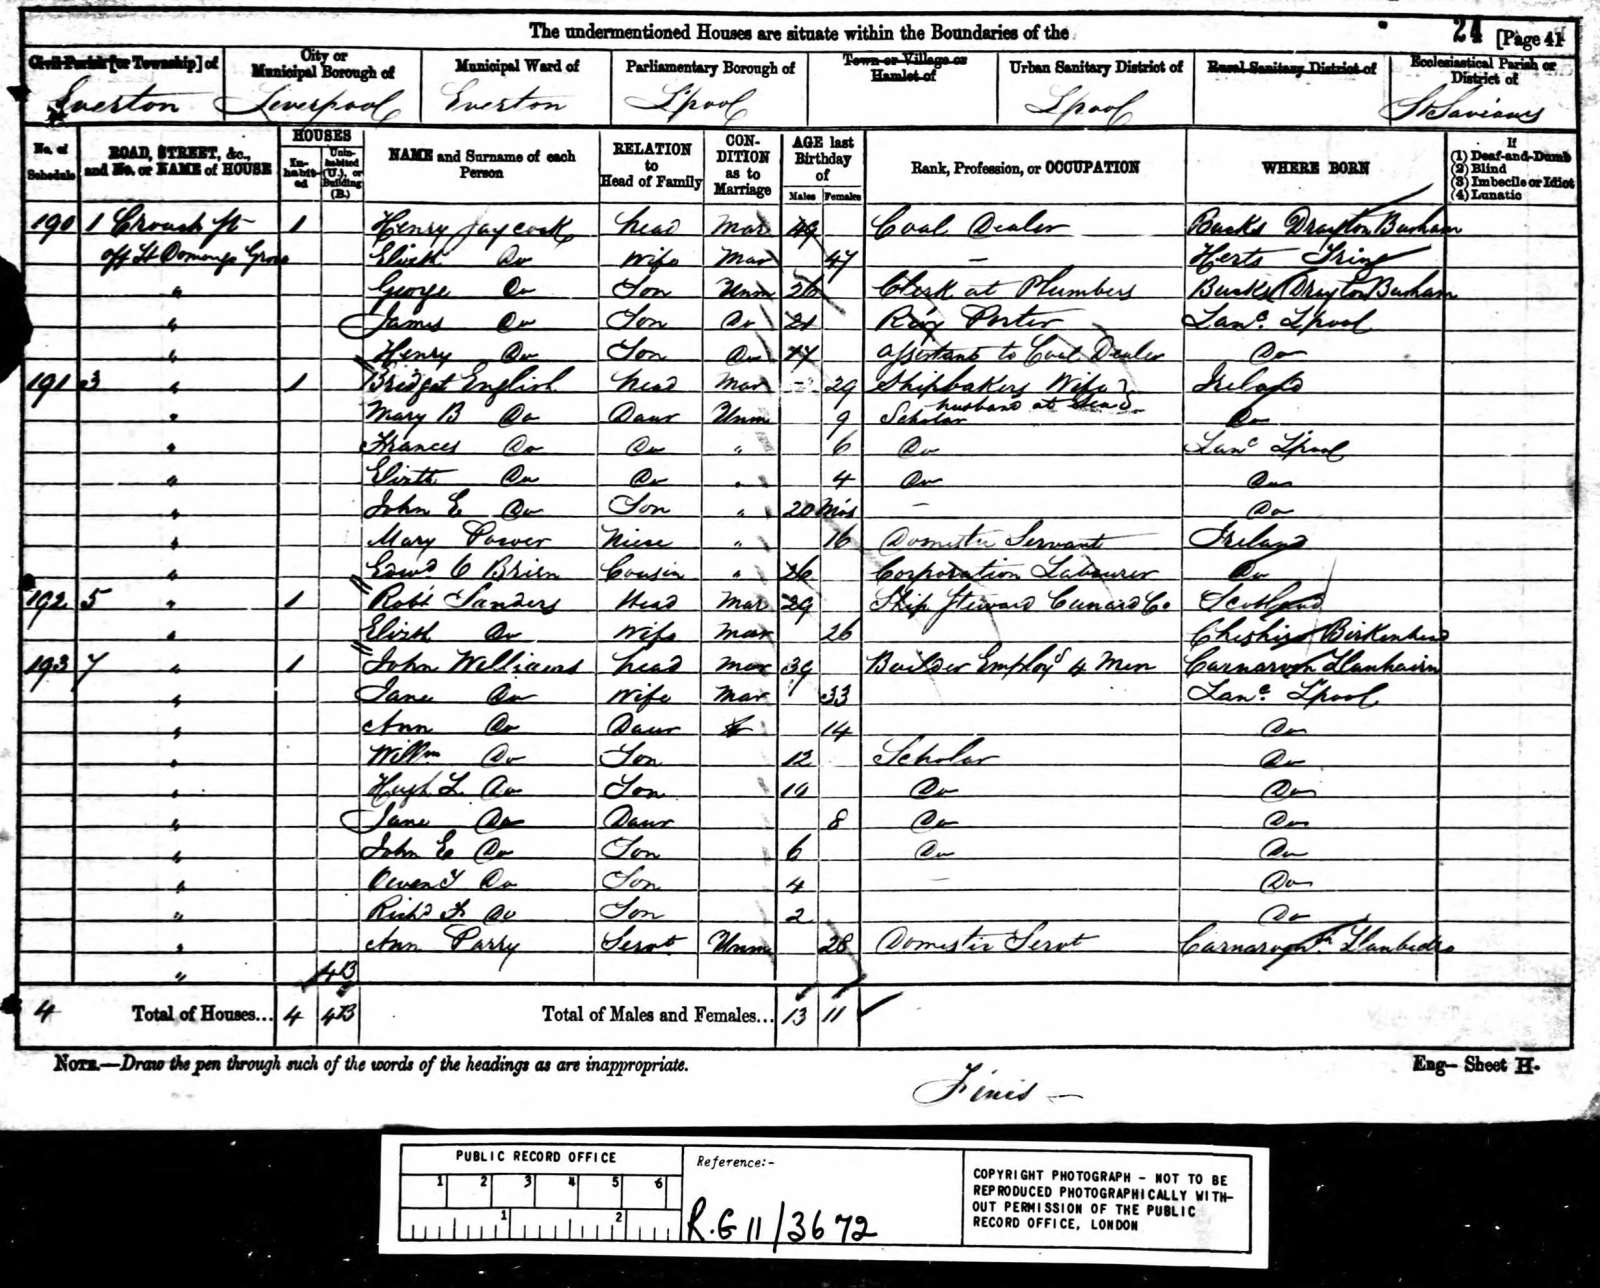 The undermentioned Houses are situate within the Boundaries of the
24 [Page 41
Civil Parish [or Township] of
Everton
City or Municipal Borough of
Liverpool
Municipal Ward of
Everton
Parliamentary Borough of
L'pool
Town or Village or Hamlet of
Urban Sanitary District of
L'pool
Rural Sanitary District of
Ecclesiastical Parish or District of
St Saviours
No. of Schedule
ROAD, STREET, &c., and No. or NAME of HOUSE
HOUSES
In-habit-ed
Unin-habited (U.), or Building (B.)
NAME and Surname of each Person
RELATION to Head of Family
CON-DITION as to Marriage
AGE last Birthday of
Males Females
Rank, Profession, or OCCUPATION
WHERE BORN
If (1) Deaf-and-Dumb (2) Blind (3) Imbecile or Idiot (4) Lunatic
190 1 Crouch St 1 Henry Jaycock head Mar 49 Coal Dealer Bucks Drayton Bucham
off St Domingo Grove Elizth Do Wife Mar 47 — Herts Tring
" George Do Son Unm 26 Clerk at Plumbers Bucks Drayton Bucham
" James Do Son Do 21 Porter Lanc. L'pool
" Henry Do Son Do 17 assistant to Coal Dealer Do
191 3 " 1 Bridget English head Mar - 29 Shipbakers Wife Ireland
husband at Sea
" Mary B Do Daur Unm 9 Scholar Do
" Frances Do Do " 6 Do Lanc L'pool
" Elizth Do Do " 4 Do Do
" John E Do Son " 20 Mos – Do
" Mary Power Niece " 16 Domestic Servant Ireland
" Edwd O Brien Cousin " 26 Corporation Labourer Do
192 5 " 1 Robt Sanders Head Mar 29 Ship Steward Cunard Co. Scotland
" Elizth Do Wife Mar 26 Cheshire Birkenhead
193 7 " 1 John Williams head Mar 39 Builder Employg 4 Men Carnarvon Llanhairn
" Jane Do Wife Mar 33 Lanc. L'pool
" Ann Do Daur 14 Do
" Willm Do Son 12 Scholar Do
" Hugh L Do Son 10 Do Do
" Jane Do Daur 8 Do Do
" John E Do Son 6 Do Do
" Owen T Do Son 4 – Do
" Richd F Do Son 2 Do
" Ann Parry Servt Unm 28 Domestic Servt Carnarvon Llanbedr
" 4B
4 Total of Houses... 4 4B Total of Males and Females... 13 11
NOTE.—Draw the pen through such of the words of the headings as are inappropriate.
Eng— Sheet H.
Finis —
PUBLIC RECORD OFFICE
1 2 3 4 5 6
1 2
Reference:-
R.G 11/3672
COPYRIGHT PHOTOGRAPH - NOT TO BE
REPRODUCED PHOTOGRAPHICALLY WITH-
OUT PERMISSION OF THE PUBLIC
RECORD OFFICE, LONDON